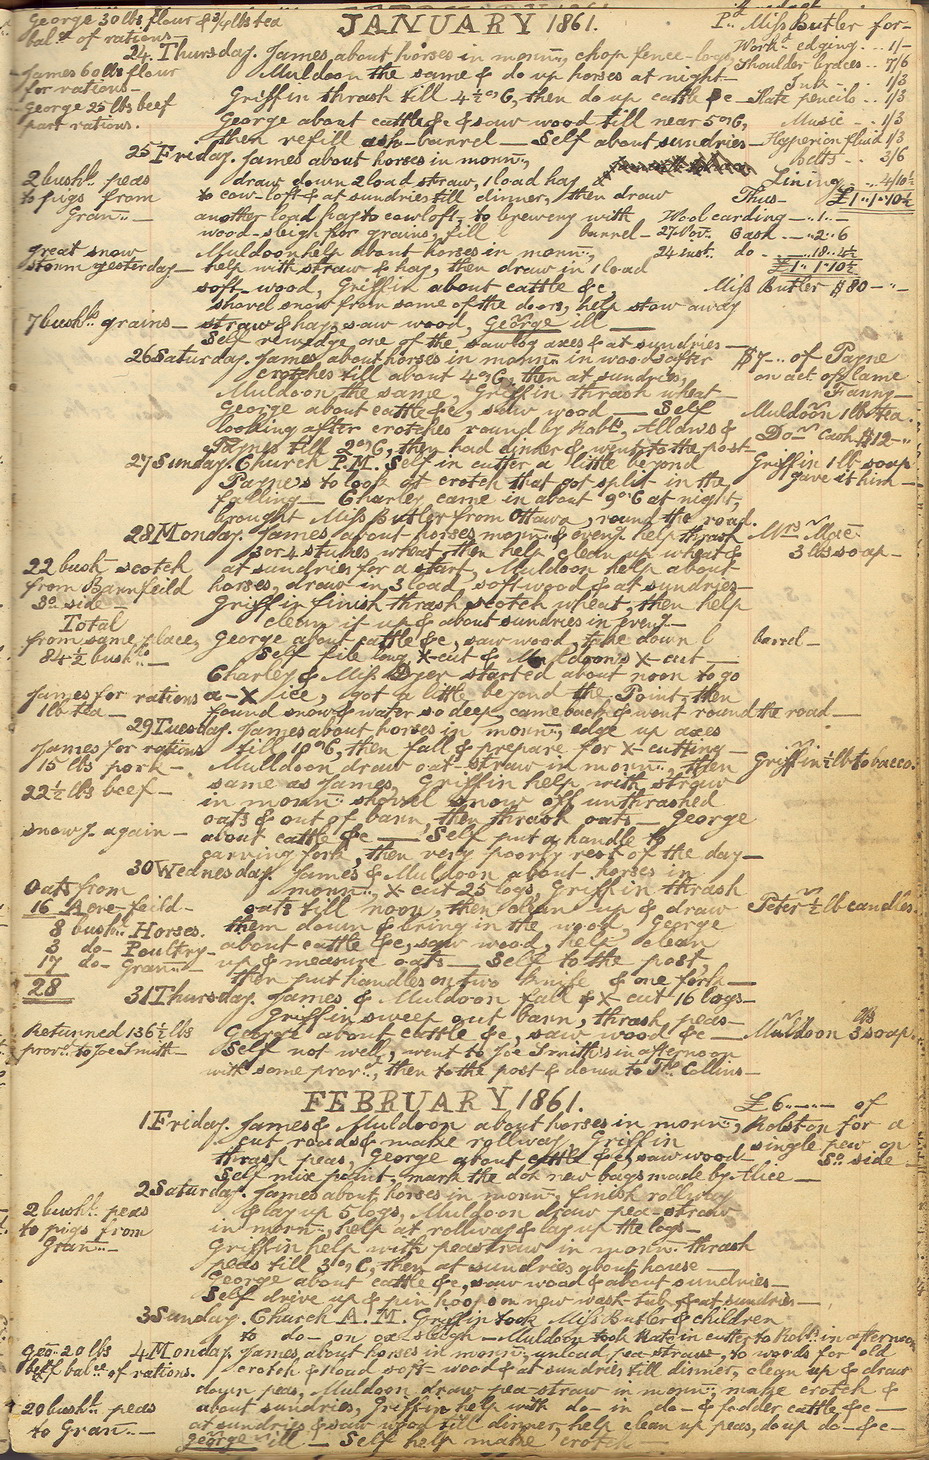 JANUARY 1861.
George 30 lbs flour & 3/4 lbs tea
bal.ce of rations—
Pd. Miss Butler for—
Workd. edging... 1/—
24 Thursday. James about horses in mornn., chop fence-logs,
Shoulder braces.. 7/6
James 60 lbs flour
for rations—
Muldoon the same & do up horses at night—
Ink.. 1/3
George 25 lbs beef
part rations.
Griffin thrash till 4½ o,C, then do up cattle &c—
Slate pencils.. 1/3
George about cattle &c & saw wood till near 5 o,C,
Music.. 1/3
then refill ash-barrel— Self about sundries—
Hyperion fluid 1/3
25 Friday. James about horses in mornn.,
Belts.. 3/6
2 bushls. peas
to pigs from
Gran..—
draw down 2 load straw, 1 load hay &
Lining.. 4/10½
to cow-loft & at sundries till dinner, then draw
Thus— £1..1..10½
another load hay to cowloft, to brewery with
Wool carding—..1..—
wood-sleigh for grains, fill barrel—
27 Nov. Cash—..2..6
great snow
storm yesterday—
Muldoon help about horses in mornn.,
24 inst. do—..18..4½
help with straw & hay, then draw in 1 load
£1..1..10½
soft-wood, Griffin about cattle &c,
Miss Butler $80—..—
shovel snow from some of the doors, help stow away
7 bushls. grains—
straw & hay, saw wood, George ill—
Self rewedge one of the sawlog axes & at sundries—
26 Saturday. James about horses in mornn. in woods after
$7... of Payne
crotches till about 4 o,C, then at sundries,
on act of lame
Muldoon the same, Griffin thrash wheat—
Fanny—
George about cattle &c, saw wood— Self
Muldoon 1 lb tea
looking after crotches round by Robt., Alldris &
Do— Cash $12—..
Paynes till 2 o,C, then had dinner & went to the post—
27 Sunday. Church P.M. Self in cutter a little beyond
Griffin 1 lb soap
Payne's to look at crotch that got split in the
gave it him—
falling— Charley came in about 9 o,C at night,
brought Miss Butler from Ottawa, round the road.
28 Monday. James about horses mornn. & eveng. help thrash
Mrs Mac
3 or 4 stukes wheat, then help clean up wheat &
3 lbs soap—
22 bush scotch
from Barnfeild
So. side—
at sundries for a start, Muldoon help about
horses, draw in 3 load soft wood & at sundries—
Griffin finish thrash scotch wheat, then help
Total
clean it up & about sundries in eveng.—
from same place,
George about cattle &c, saw wood, take down 1 barrel—
84½ bushls.—
Self file long X-cut & Muldoon's X-cut—
Charley & Miss Dyer started about noon to go
James for rations
1 lb tea—
a-X ice, got a little beyond the Point, then
found snow & water so deep, came back & went round the road—
29 Tuesday. James about horses in mornn., edge up axes
James for rations
till 10 o,C, then fall & prepare for X-cutting—
15 lbs pork—
Mulldoon draw oat-straw in mornn., then
Griffin ½ lb tobacco.
22½ lbs beef—
same as James, Griffin help with straw
in mornn. shovel snow off unthrashed
oats & out of barn, then thrash oats— George
snowg. again—
about cattle &c— Self put a handle to
carving fork, then very poorly rest of the day—
30 Wednesday. James & Muldoon about horses in
Oats from
16 Acre-feild—
mornn., X-cut 25 logs, Griffin thrash
oats till noon, then clean up & draw
Peter ½ lb candles.
8 bush.. Horses.
them down & bring in the wood, George
3 do— Poultry—
about cattle &c, saw wood, help clean
17 do— Gran..—
up & measure oats— Self to the post,
28
then put handles on two knife & one fork—
31 Thursday. James & Muldoon fall & X-cut 16 logs—
Griffin sweep out barn, thrash peas—
Returned 136½ lbs
provn. to Joe Smith—
George about cattle &c, saw wood &c—
Muldoon 3 lbs soap.
Self not well, went to Joe Smith's in afternoon
with some provn., then to the post & down to Thos. Collins—
FEBRUARY 1861.
£6..—..— of
1 Friday. James & Muldoon about horses in mornn.,
Rolston for a
cut roads & make rollway, Griffin
single pew on
thrash peas, George about cattle &c, saw wood—
So. side—
Self mix paint, mark the dox new bags made by Alice—
2 Saturday. James about horses in mornn., finish rollway
2 bushls. peas
to pigs from
Gran..—
& lay up 5 logs, Muldoon draw pea-straw
in mornn., help at rollway & lay up the logs—
Griffin help with peastraw in mornn. thrash
peas till 3 o,C, then at sundries about house—
George about cattle &c, saw wood & about sundries—
Self drive up & pin hoops on new wash-tub, & at sundries—
3 Sunday. Church A.M. Griffin took Miss Butler & children
to do— on ox sleigh— Muldoon took Kate in cutter to Robt. in afternoon
Geo. 20 lbs
beef balce. of rations.
4 Monday. James about horses in mornn., unload pea-straw, to woods for old
crotch & load soft-wood & at sundries till dinner, clean up & draw
down peas, Muldoon draw pea-straw in mornn., make crotch &
20 bushls. peas
to Gran..—
about sundries, Griffin help with do— in do— & fodder cattle &c—
at sundries & saw wood till dinner, help clean up peas, do up do— &c—
George ill— Self help make crotch—